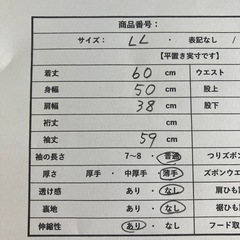 商品番号：
サイズ： LL ・ 表記なし /
【平置き実寸です】
着丈 60 cm ウエスト
身幅 50 cm 股上
肩幅 38 cm 股下
裄丈 cm
袖丈 59 cm
袖の長さ 7〜8 ・ 普通 つりズボン
厚さ 厚手 ・ 中厚手 ・ 薄手 ズボンウエス
透け感 あり ・ なし 肩ひも
裏地 あり ・ なし 裾ひも
伸縮性 あり ・ なし フード取